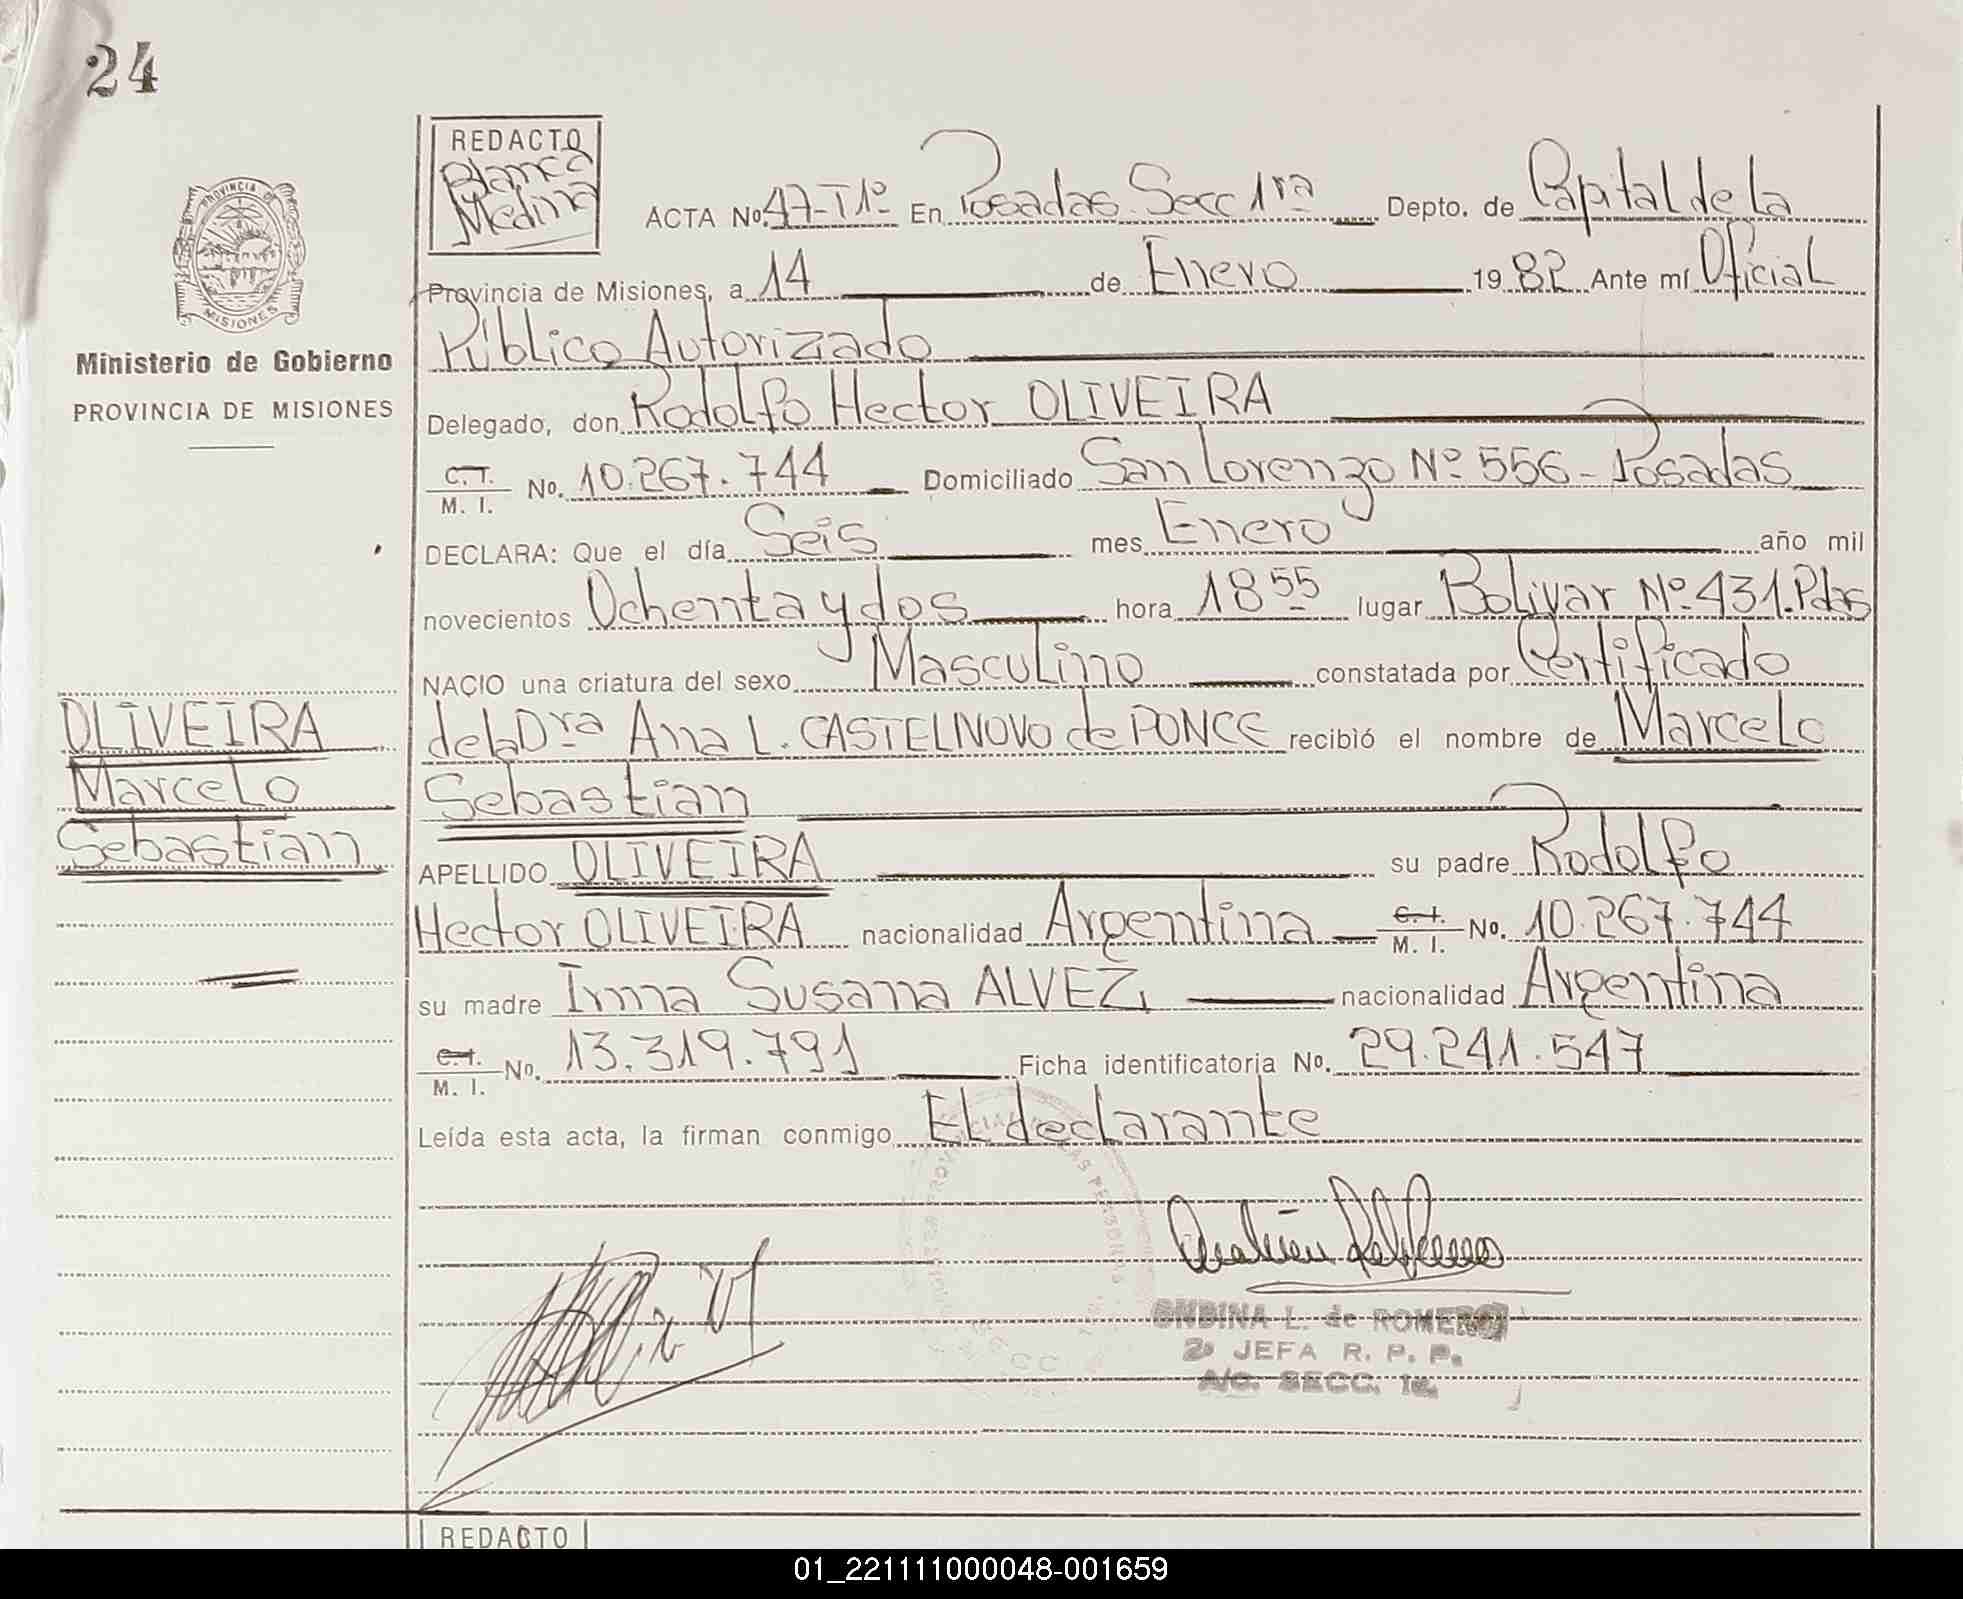 24
REDACTO
Blanca
Medina
PROVINCIA DE
MISIONES
Ministerio de Gobierno
PROVINCIA DE MISIONES
OLIVEIRA
Marcelo
Sebastian
ACTA No. 47-T1º En Posadas Secc 1ra Depto. de Capital de la
Provincia de Misiones, a 14 de Enero 1982 Ante mí Oficial
Público Autorizado
Delegado, don Rodolfo Hector OLIVEIRA
C.I. M. I. No. 10.267.744 Domiciliado San Lorenzo Nº 556 - Posadas
DECLARA: Que el día Seis mes Enero año mil
novecientos Ochenta y dos hora 18 55 lugar Bolivar Nº 431. Pdas
NACIO una criatura del sexo Masculino constatada por Certificado
de la Dra Ana L. CASTELNOVO de PONCE recibió el nombre de Marcelo
Sebastian
APELLIDO OLIVEIRA su padre Rodolfo
Hector OLIVEIRA nacionalidad Argentina C.I. M. I. No. 10.267.744
su madre Irma Susana ALVEZ nacionalidad Argentina
C.I. M. I. No. 13.319.791 Ficha identificatoria No. 29.241.547
Leída esta acta, la firman conmigo El declarante
ONDINA L. de ROMERO
2a JEFA R. P. P.
A/C. SECC. 1a.
REDACTO
01_221111000048-001659